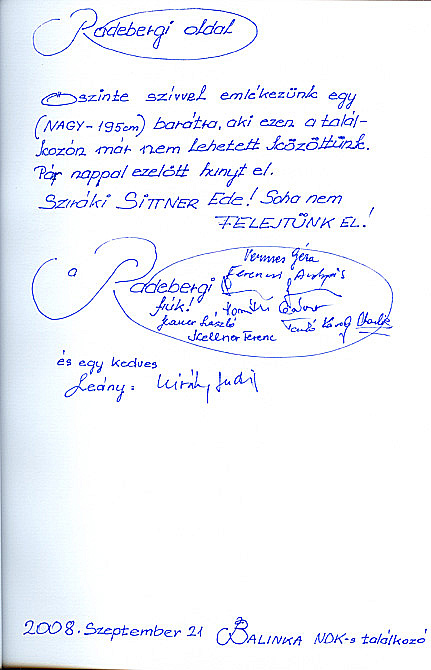 Radebergi oldal
Őszinte szívvel emlékezünk egy
(NAGY-195cm) barátra, aki ezen a talál-
kozón már nem lehetett közöttünk.
Pár nappal ezelőtt hunyt el.
SZIRÁKI SITTNER EDE! Soha nem
FELEJTÜNK EL!
a Radebergi
fiúk!
Vermes Géza
Ferenczi
László
Kellner Ferenc
és egy kedves
Leány: Király Judit
2008. Szeptember 21 BALINKA NDK-s találkozó